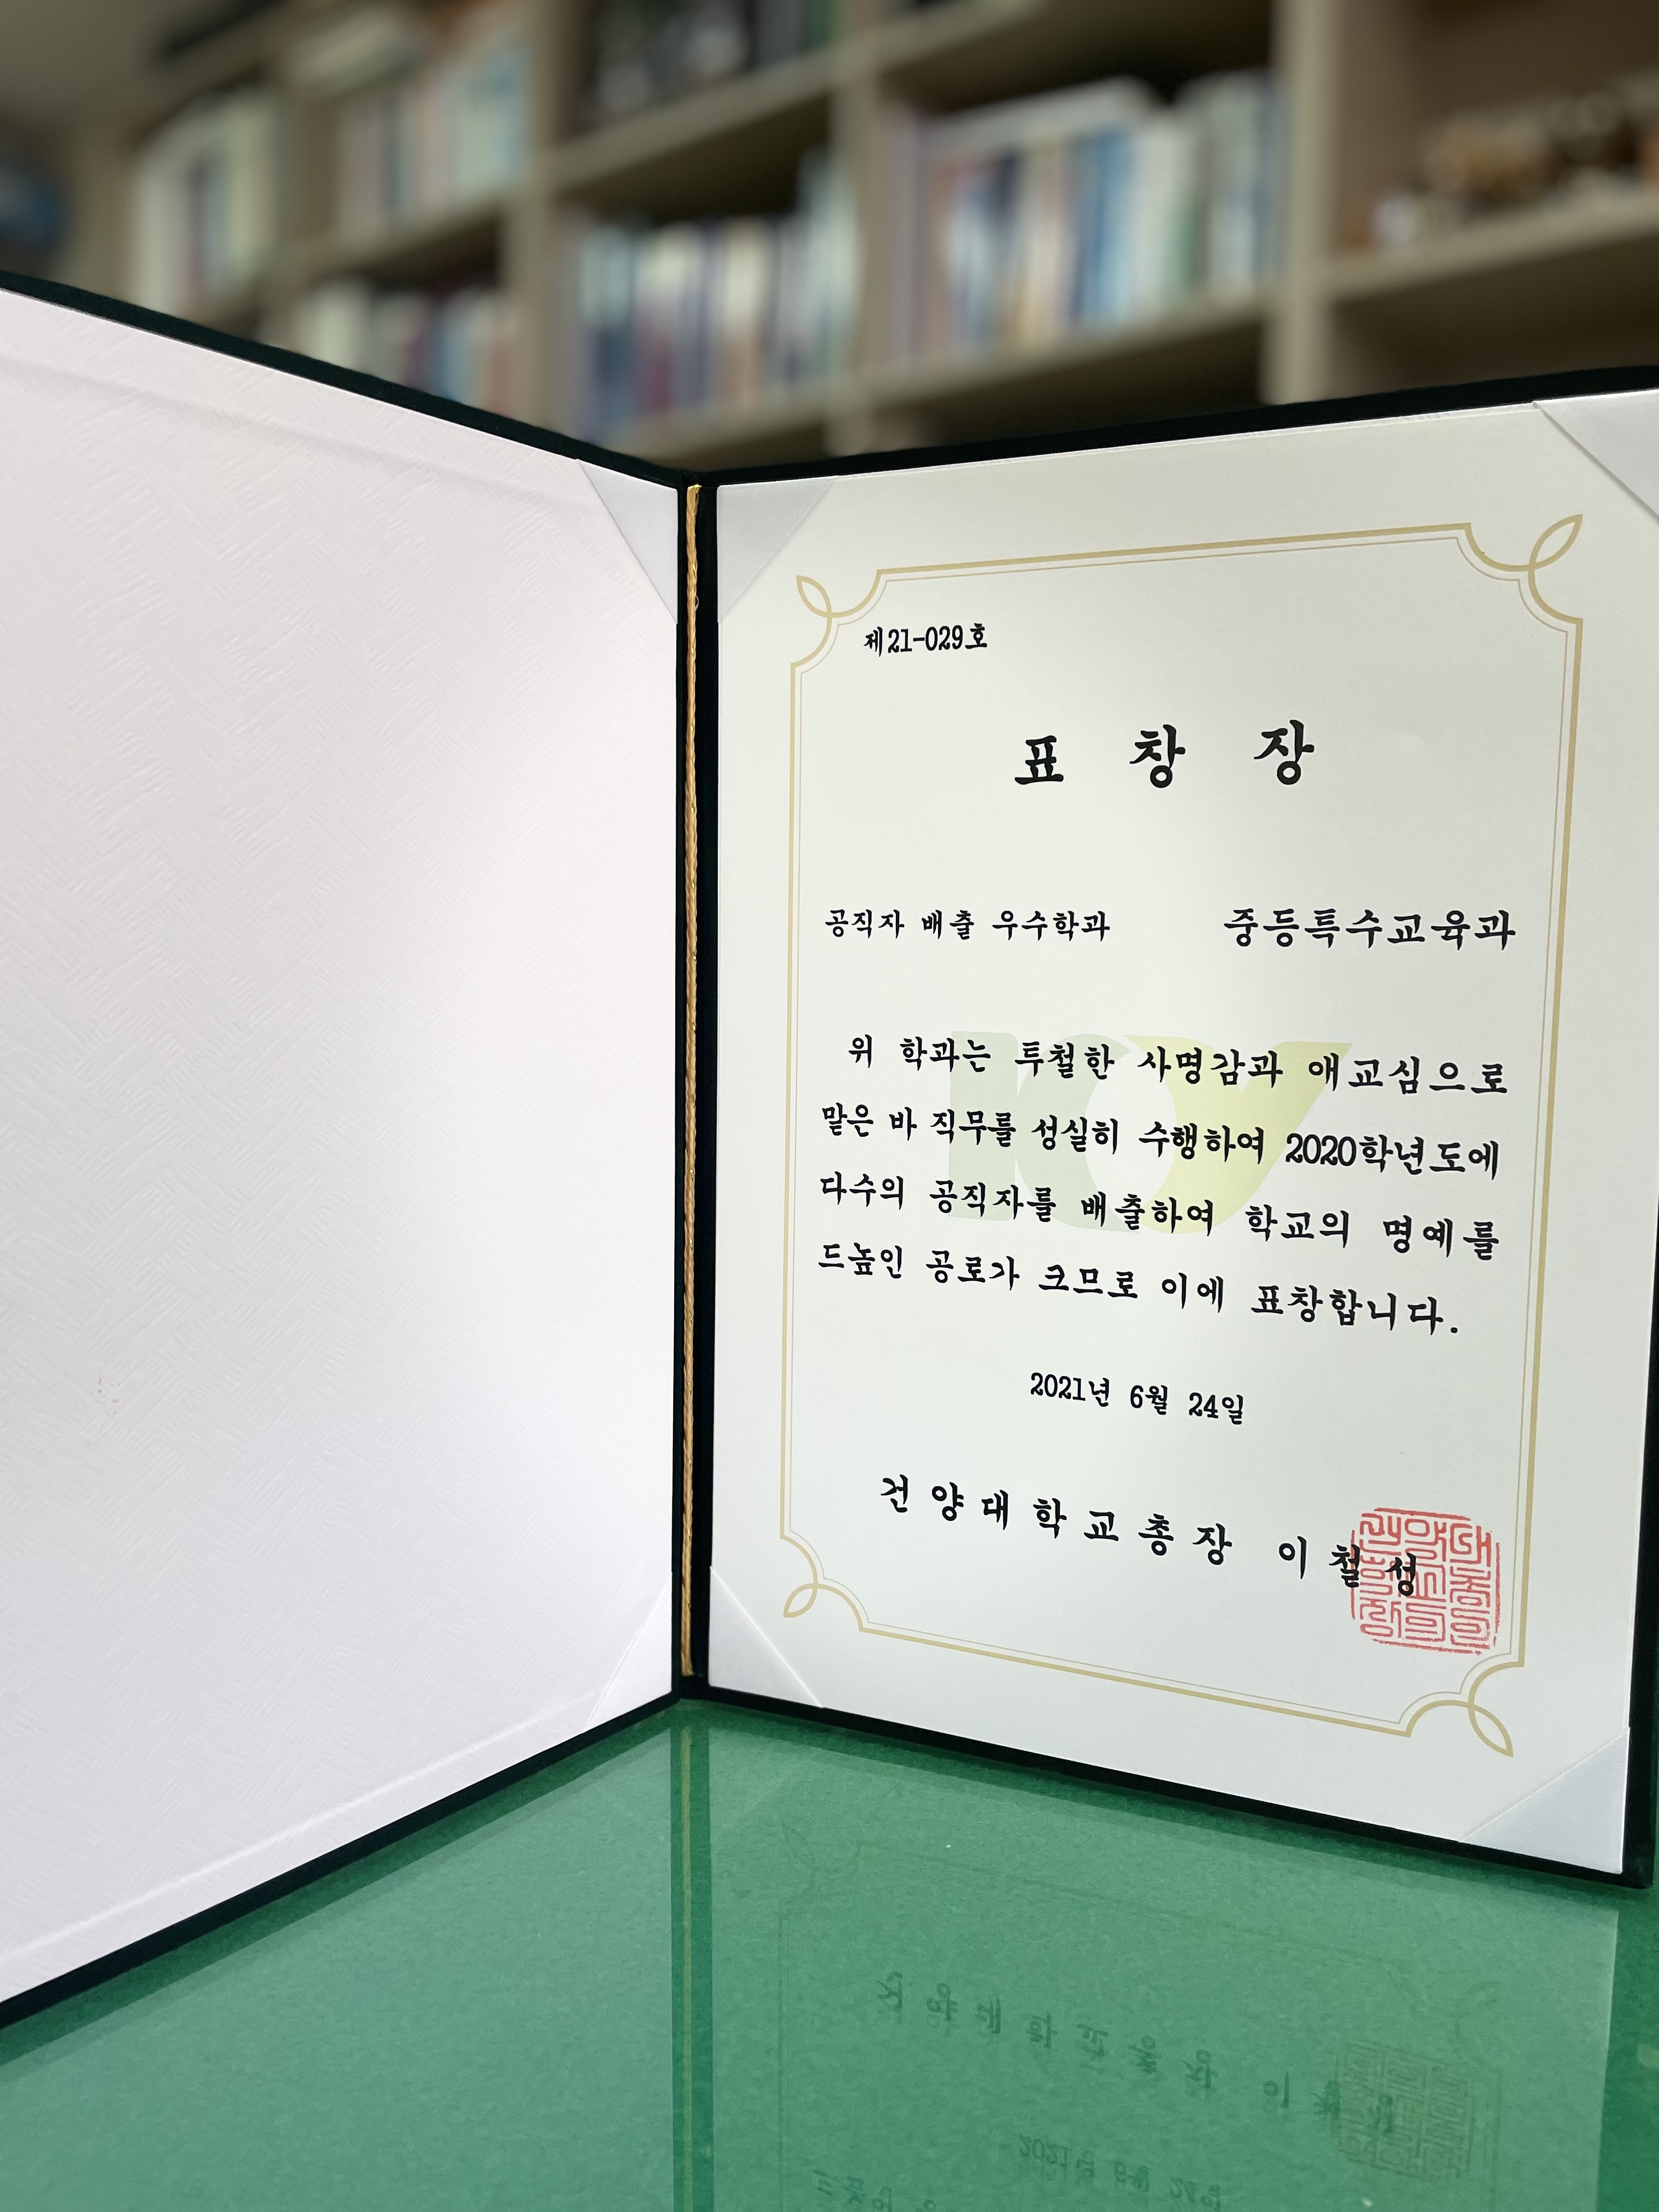 제21-029호
표 창 장
공직자 배출 우수학과 중등특수교육과
위 학과는 투철한 사명감과 애교심으로
맡은 바 직무를 성실히 수행하여 2020학년도에
다수의 공직자를 배출하여 학교의 명예를
드높인 공로가 크므로 이에 표창합니다.
2021년 6월 24일
건양대학교총장 이철성